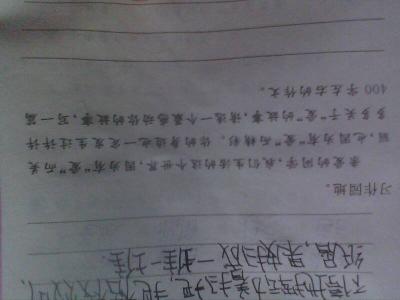 纸屑,果皮扫成一堆一堆
习作园地。
亲爱的同学,我们生活的这个世界,因为有“爱”而美
丽,也因为有“爱”而精彩。你的身边也一定发生过许许
多多关于“爱”的故事,请选一个最感动你的故事,写一篇
400字左右的作文。